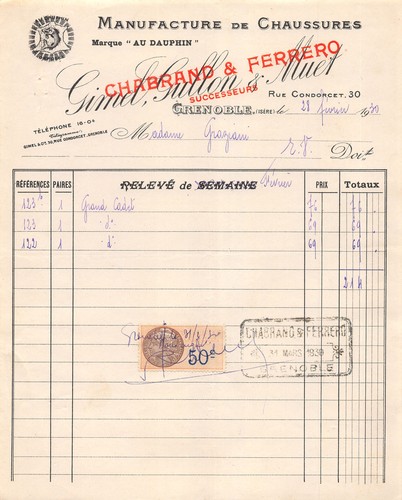 MANUFACTURE DE CHAUSSURES
Marque "AU DAUPHIN"
CHABRAND & FERRERO
SUCCESSEURS
Gimel, Gullon & Muet
RUE CONDORCET. 30
GRENOBLE, (ISÈRE) le 28 février 1930
TÉLÉPHONE 16-04
Télégrammes
GIMEL & Cie 30, RUE CONDORCET, GRENOBLE
Madame Graziani
Doit
RÉFÉRENCES PAIRES RELEVÉ de SEMAINE Février PRIX TOTAUX
123 1 Grand Cadet 76 76
123 1 - d° 69 69
122 1 - d° 69 69
214
50c
CHABRAND & FERRERO
31 MARS 1930
GRENOBLE